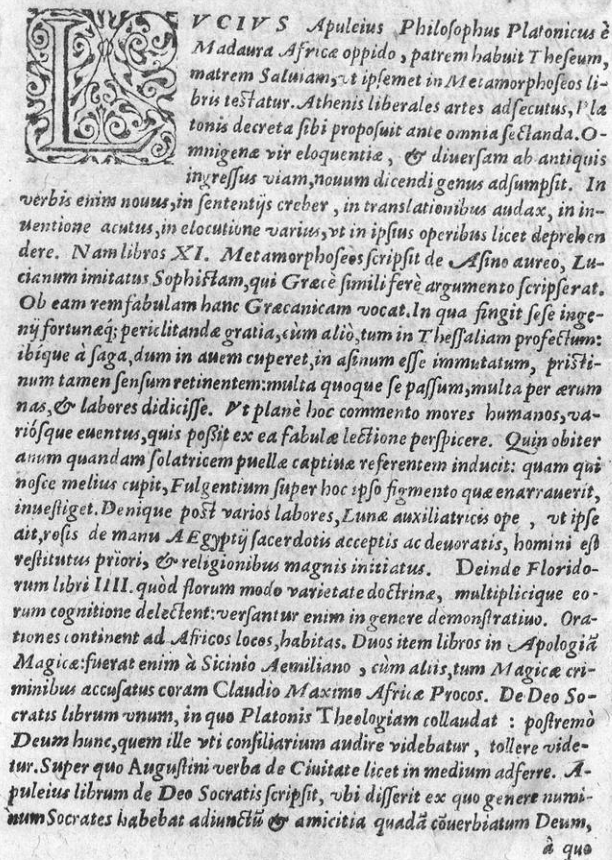 LVCIVS Apuleius Philoſophus Platonicus è
Madaura Africæ oppido, patrem habuit Theſeum,
matrem Saluiam, vt ipſemet in Metamorphoſeos li-
bris teſtatur. Athenis liberales artes adſecutus, Pla
tonis decreta ſibi propoſuit ante omnia ſectanda. O-
mnigenæ vir eloquentiæ, & diuerſam ab antiquis
ingreſſus viam, nouum dicendi genus adſumpſit. In
verbis enim nouus, in ſententijs creber, in translationibus audax, in in-
uentione acutus, in elocutione varius, vt in ipſius operibus licet deprehen
dere. Nam libros XI. Metamorphoſeos ſcripſit de Aſino aureo, Lu-
cianum imitatus Sophiſtam, qui Græcè ſimili ferè argumento ſcripſerat.
Ob eam rem fabulam hanc Græcanicam vocat. In qua fingit ſeſe inge-
nij fortunæq; periclitandæ gratia, cùm aliò, tum in Theſſaliam profectum:
ibique à ſaga, dum in auem cuperet, in aſinum eſſe immutatum, priſti-
num tamen ſenſum retinentem: multa quoque ſe paſſum, multa per ærum
nas, & labores didiciſſe. Vt planè hoc commento mores humanos, va-
rióſque euentus, quis poßit ex ea fabulæ lectione perſpicere. Quin obiter
anum quandam ſolatricem puellæ captiuæ referentem inducit: quam qui
noſce melius cupit, Fulgentium ſuper hoc ipſo figmento quæ enarrauerit,
inueſtiget. Denique poſt varios labores, Lunæ auxiliatricis ope, vt ipſe
ait, roſis de manu AEgyptij ſacerdotis acceptis ac deuoratis, homini eſt
reſtitutus priori, & religionibus magnis initiatus. Deinde Florido-
rum libri IIII. quòd florum modo varietate doctrinæ, multiplicique eo-
rum cognitione delectent: verſantur enim in genere demonſtratiuo. Ora-
tiones continent ad Africos locos, habitas. Duos item libros in Apologiã
Magicæ: fuerat enim à Sicinio Aemiliano, cùm aliis, tum Magicæ cri-
minibus accuſatus coram Claudio Maximo Africæ Procos. De Deo So-
cratis librum vnum, in quo Platonis Theologiam collaudat: poſtremò
Deum hunc, quem ille vti conſiliarium audire videbatur, tollere vide-
tur. Super quo Auguſtini verba de Ciuitate licet in medium adferre. A-
puleius librum de Deo Socratis ſcripſit, vbi diſſerit ex quo genere numi-
num Socrates habebat adiunctũ & amicitia quadã cõuerbiatum Deum,
à quo